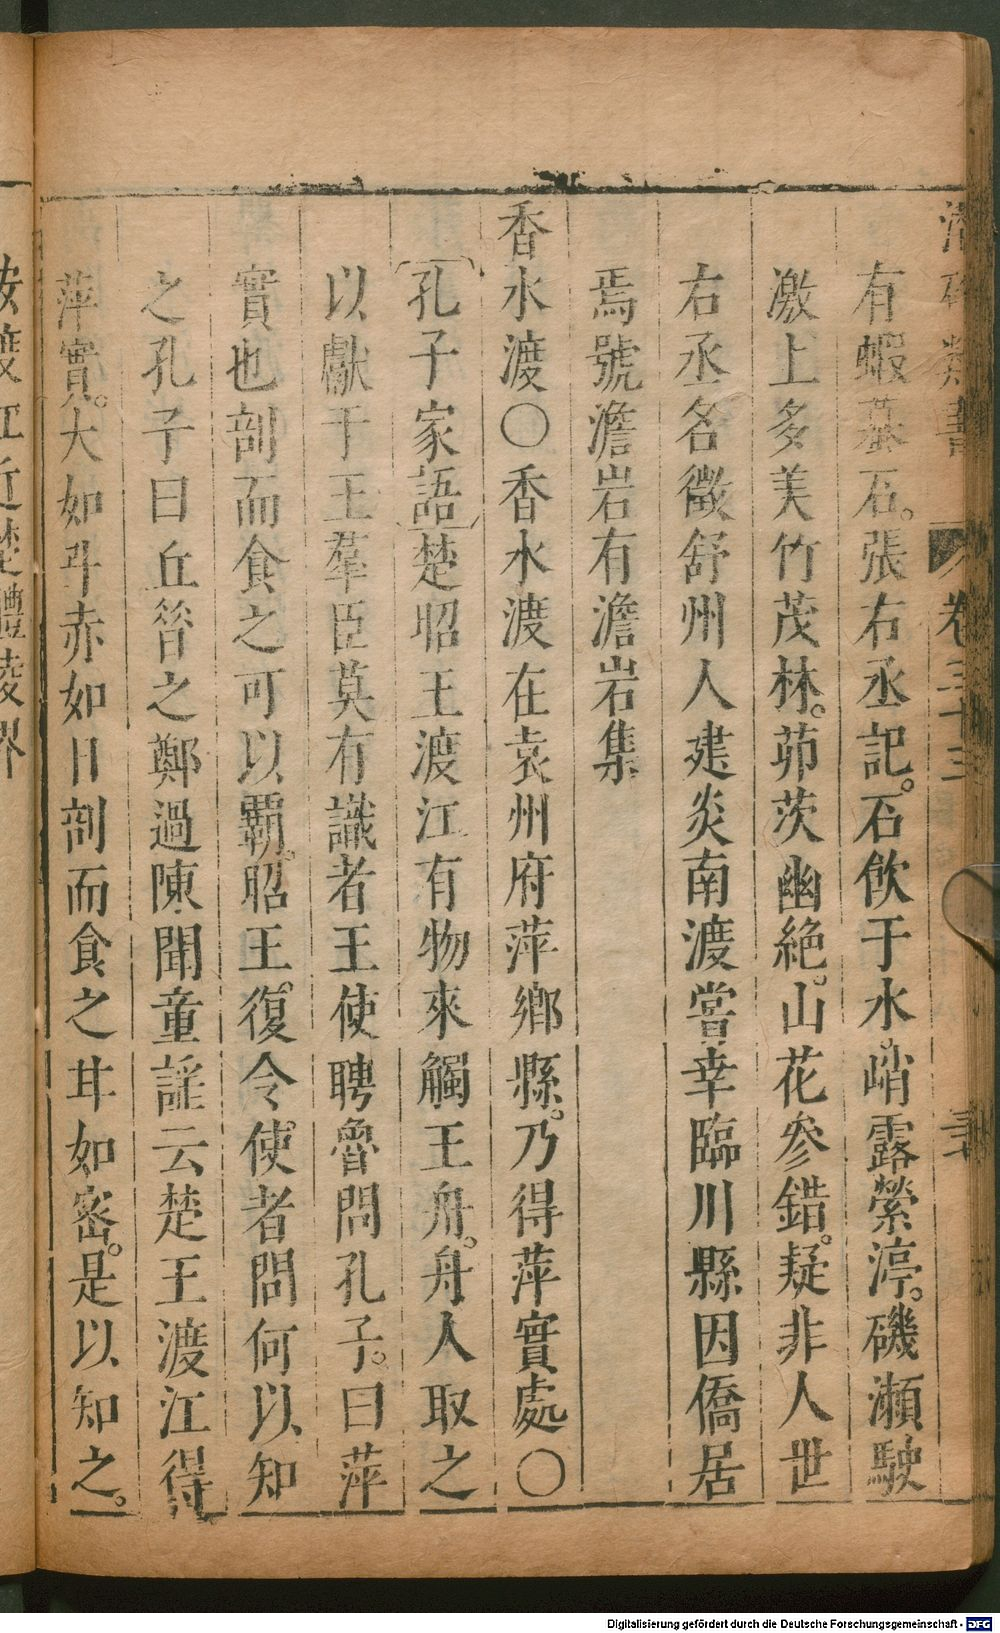 潛確類書 卷三十三 三七
有蝦蟇石。張右丞記。石飲于水。峭露縈渟。磯瀬駛
激上多美竹茂林。茆茨幽絕。山花參錯。疑非人世
右丞名徵舒州人建炎南渡嘗幸臨川縣因僑居
焉號澹岩有澹岩集
香水渡○香水渡在袁州府萍鄉縣。乃得萍實處○
孔子家語楚昭王渡江有物來觸王舟。舟人取之
以獻于王羣臣莫有識者王使聘魯問孔子。曰萍
實也剖而食之可以覇。昭王。復令使者問何以知
之孔子曰丘昝之鄭過陳聞童謡云楚王渡江得
萍實。大如斗赤如日剖而食之甘如密。是以知之。
按渡江近楚醴陵界
Digitalisierung gefördert durch die Deutsche Forschungsgemeinschaft - DFG